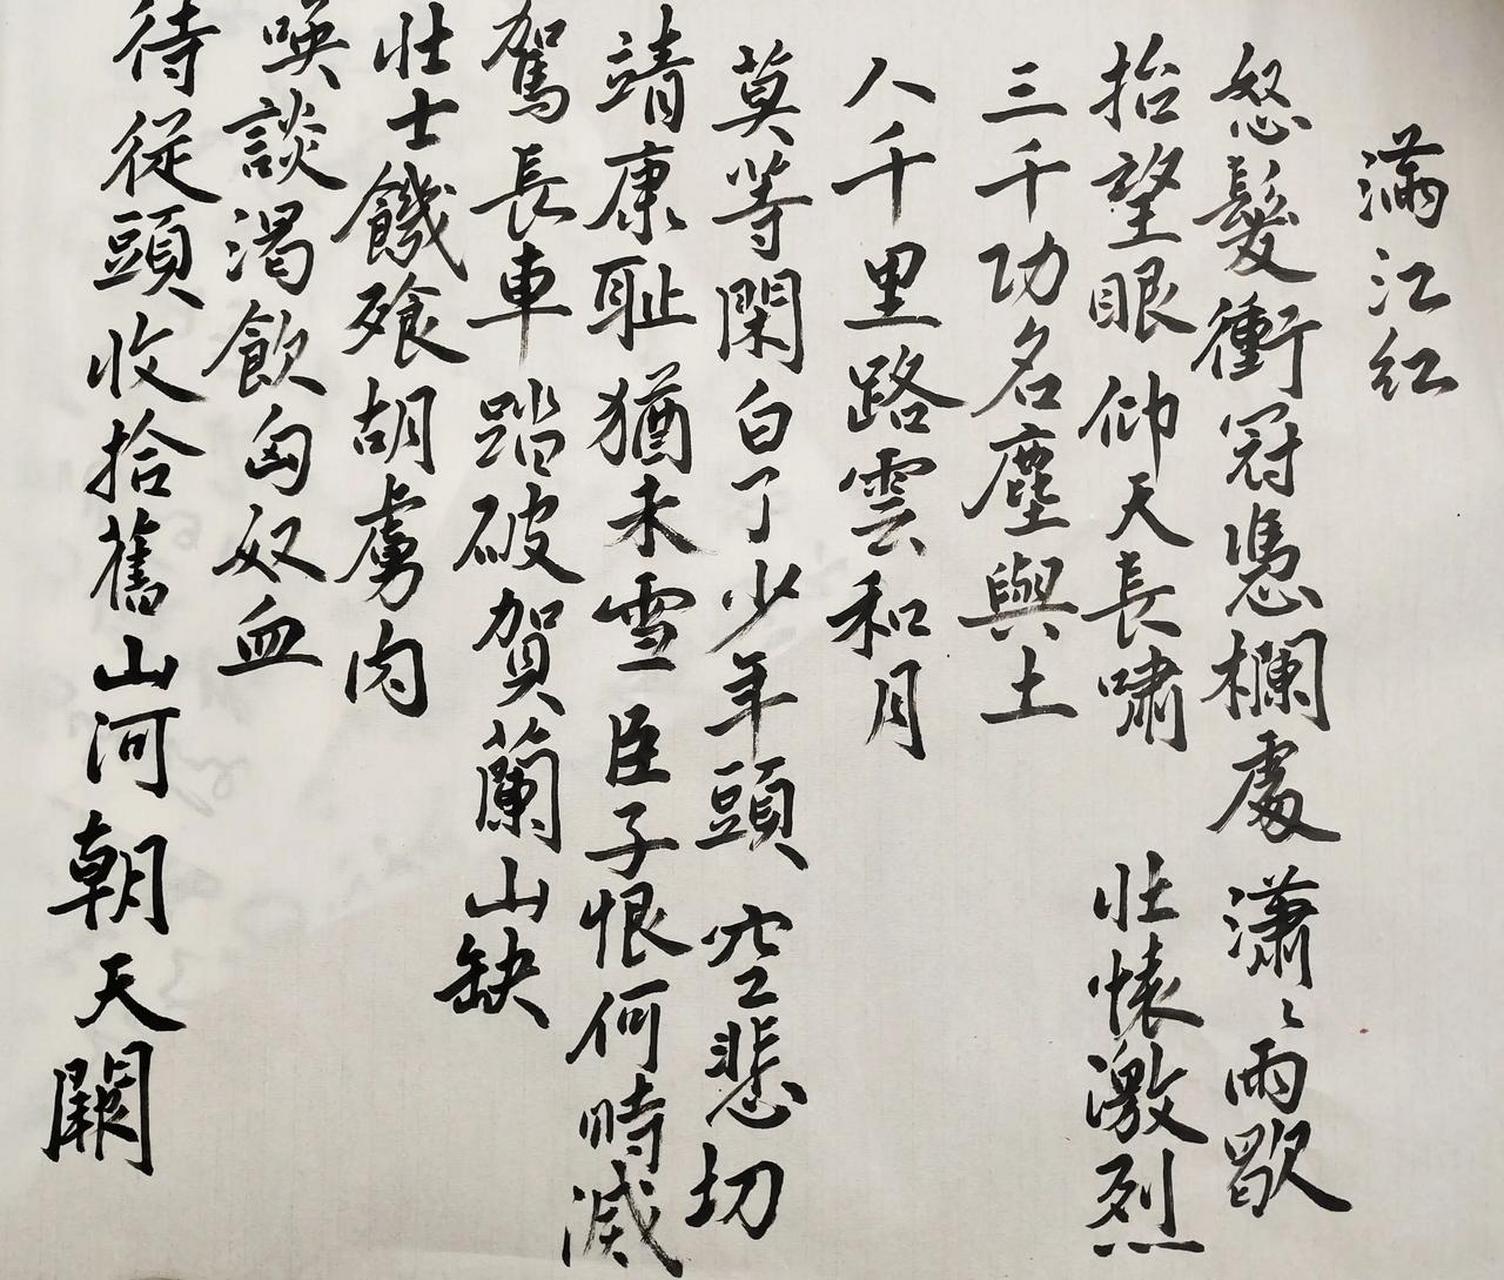 滿江红
怒髮衝冠憑欄處瀟〻雨歇
抬望眼仰天長嘯壯懷激烈
三千功名塵與土
八千里路雲和月
莫等閑白了少年頭空悲切
靖康耻猶未雪臣子恨何時滅
駕長車踏破賀蘭山缺
壯士饑飱胡虜肉
咲談渴飲匈奴血
待從頭收拾舊山河朝天闕